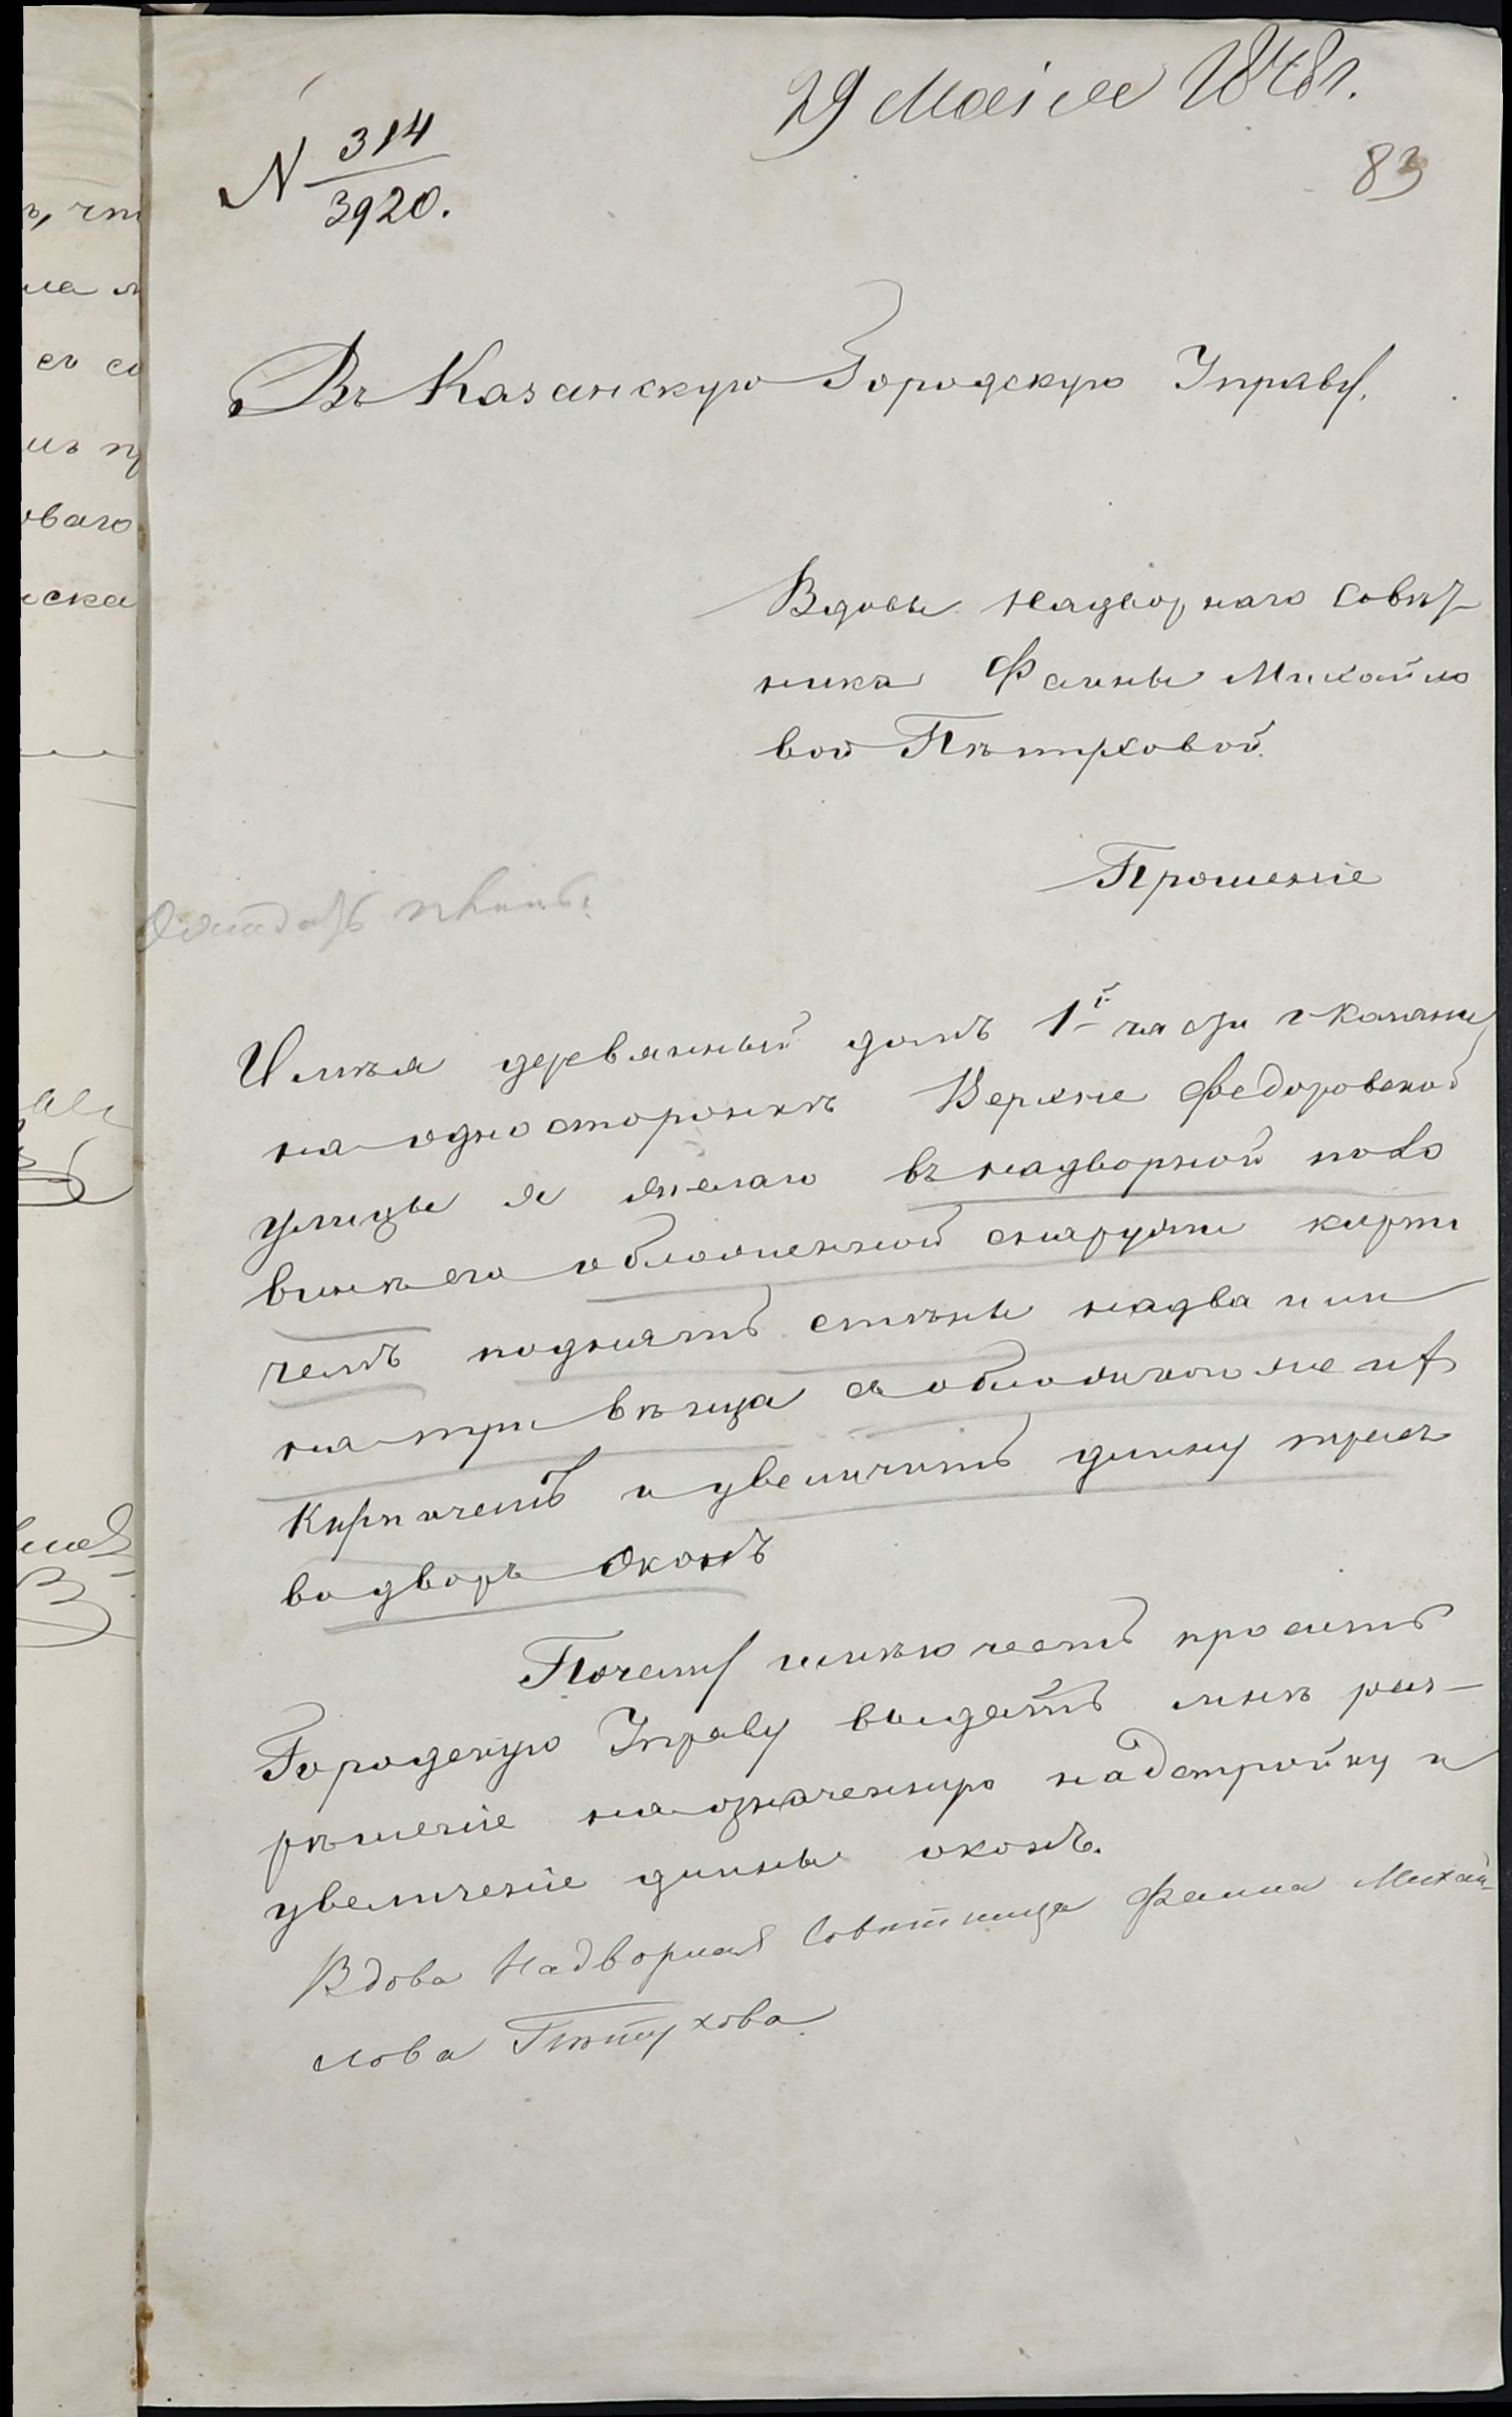 29 Маія 1878 г.
N 314
3920.
83
Въ Казанскую Городскую Управу.
Вдовы Надворнаго Совѣт
ника Фаины Михайло
вой Пѣтуховой.
Прошеніе
Имѣя деревянный домъ 1й части г Казани
на одно сторонкѣ Верхне Федоровской
улицы я желаю въ надворной поло
винѣ его обложенной снаружи кирпи
чемъ поднять стѣны на два или
на три вѣнца съ обложкою же их
кирпичемъ и увеличить длину трехъ
во дворъ оконъ
Почему имѣю честь просить
Городскую Управу выдать мнѣ раз-
рѣшеніе на означенную надстройку и
увеличеніе длины оконъ.
Вдова Надворная Совѣтница Фаина Михай-
лова Пѣтухова.